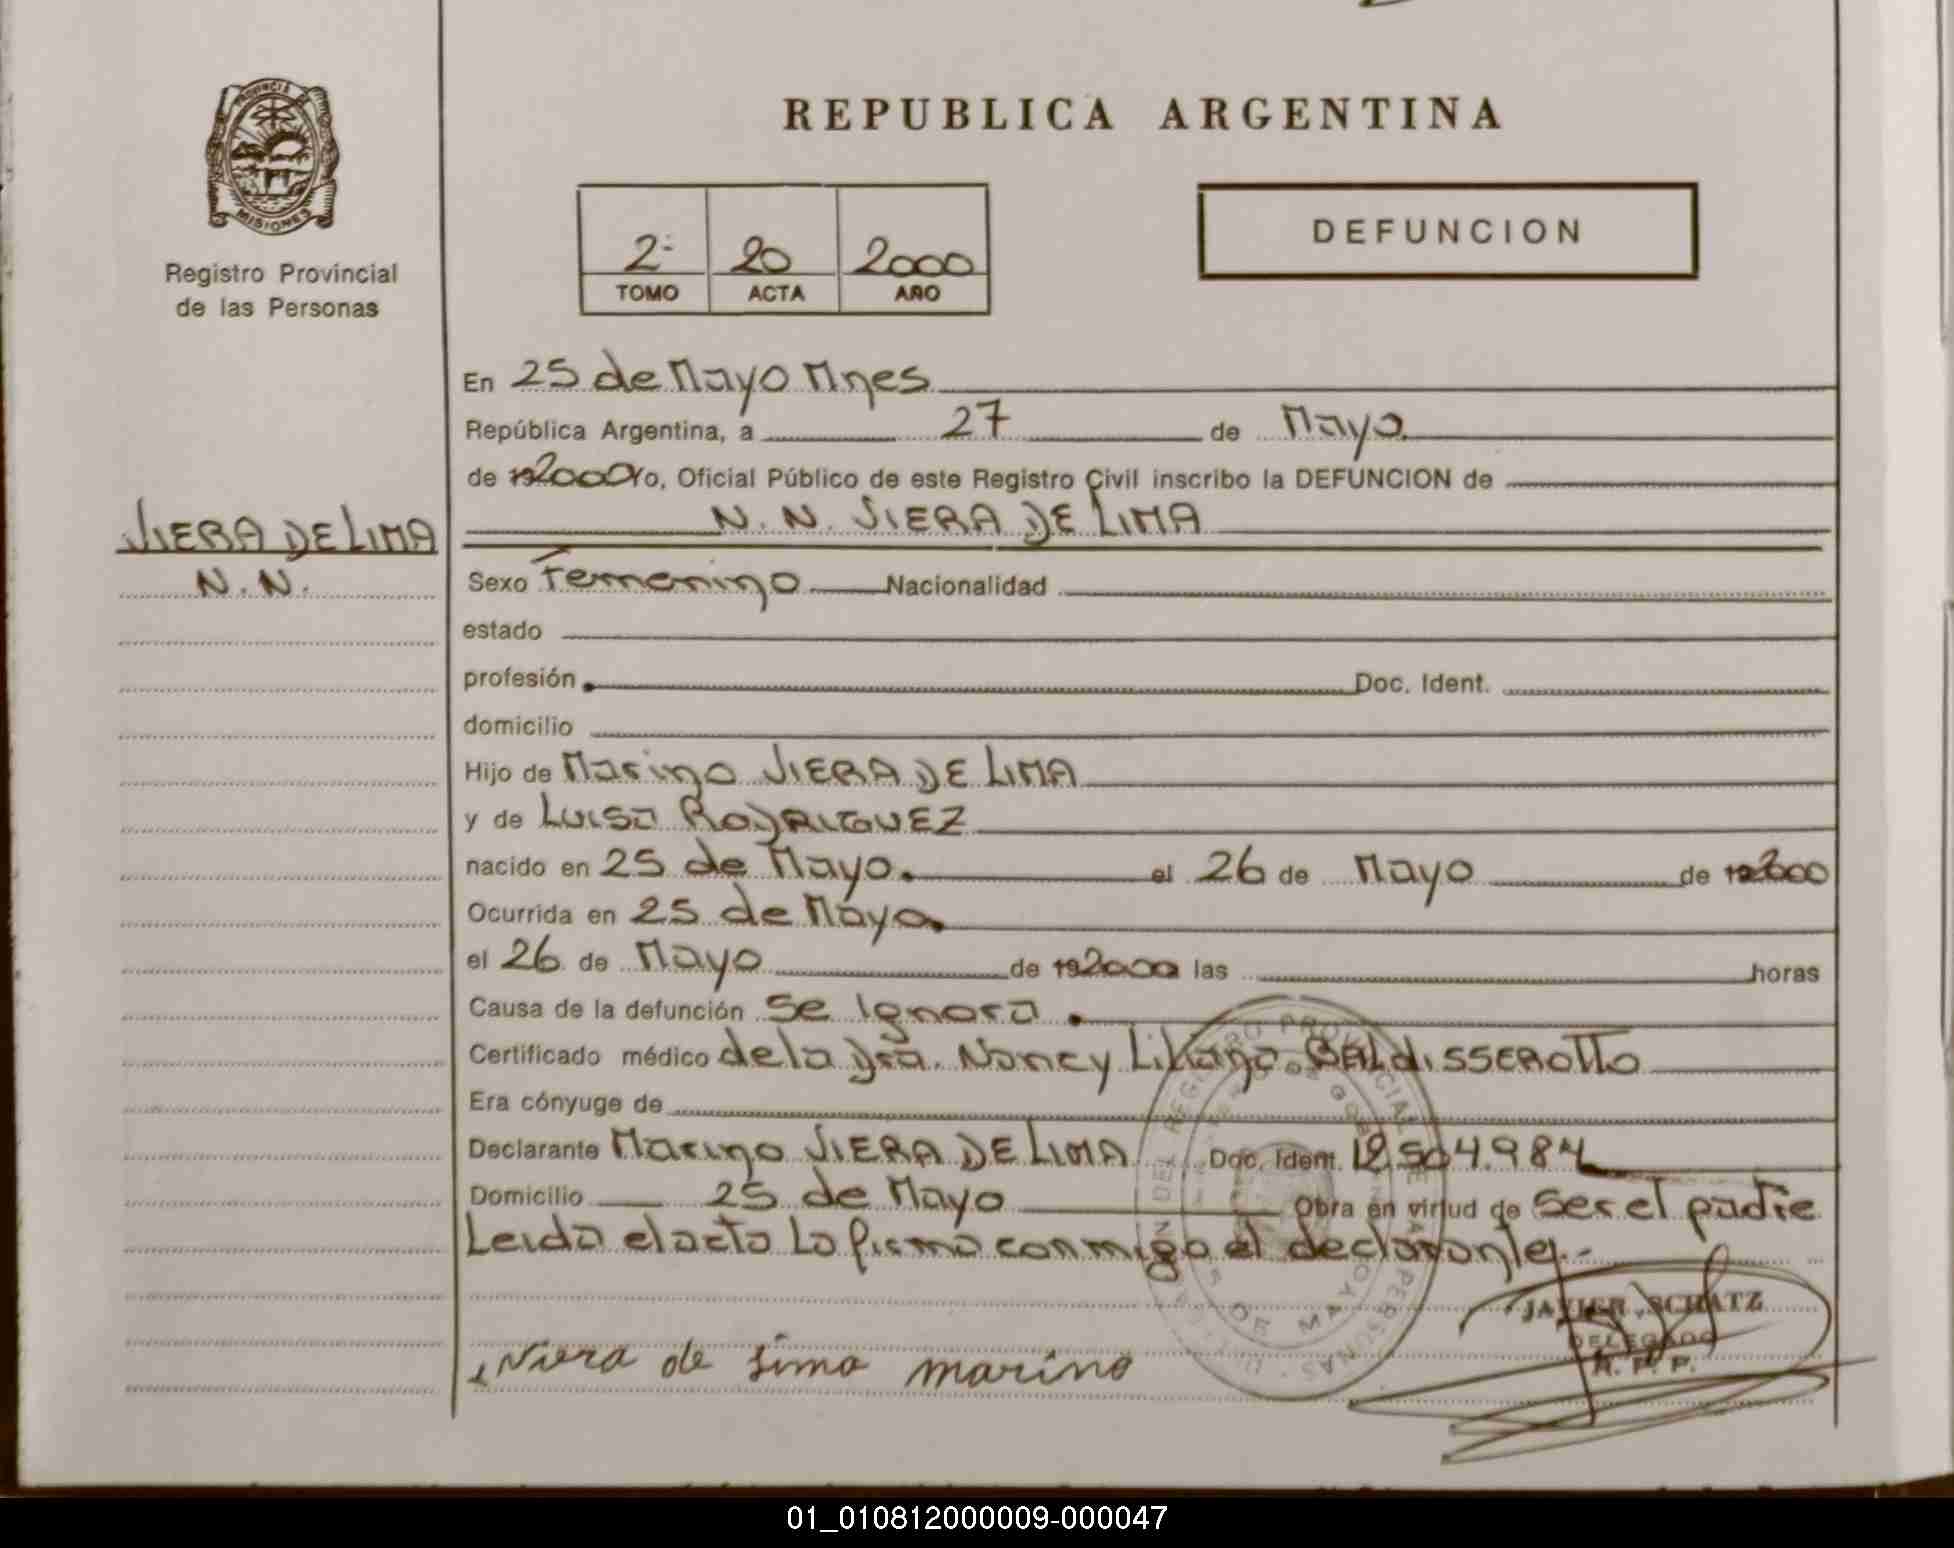 REPUBLICA ARGENTINA
PROVINCIA
MISIONES
Registro Provincial
de las Personas
2- 20 2000
TOMO ACTA AÑO
DEFUNCION
En 25 de Mayo Mnes
República Argentina, a 27 de Mayo
de 192000 Yo, Oficial Público de este Registro Civil inscribo la DEFUNCION de
VIERA DE LIMA
N.N.
N. N. VIERA DE LIMA
Sexo Femenino Nacionalidad
estado
profesión Doc. Ident.
domicilio
Hijo de Marino VIERA DE LIMA
y de Luisa RODRIGUEZ
nacido en 25 de Mayo. el 26 de Mayo de 192000
Ocurrida en 25 de Mayo.
el 26 de Mayo de 192000 las horas
Causa de la defunción Se Ignora.
Certificado médico de la Dra. Nancy Liliana BALdISSEROTTO
Era cónyuge de
Declarante Marino VIERA DE LIMA Doc. Ident. 12.504.984
Domicilio 25 de Mayo Obra en virtud de ser el padre
Leida el acta La firma conmigo el declarante.-
JAVIER SCHATZ
DELEGADO
R. P. P.
Viera de Lima marino
01_010812000009-000047